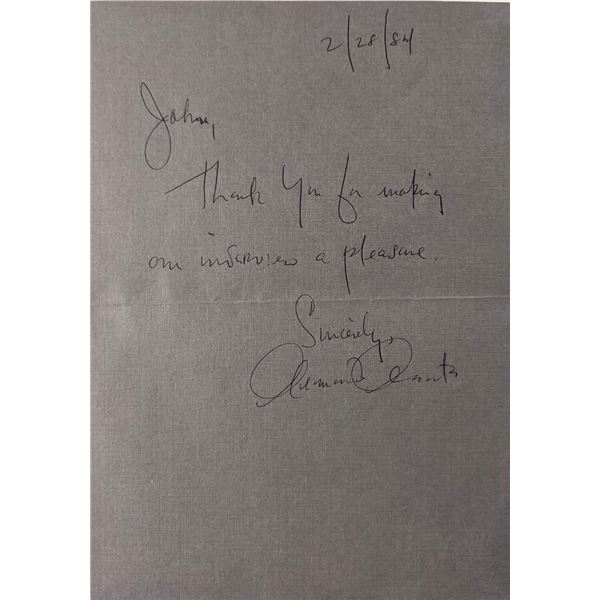 2/28/84
John,
Thank You for making
our interview a pleasure.
Sincerely,
Armand Assante